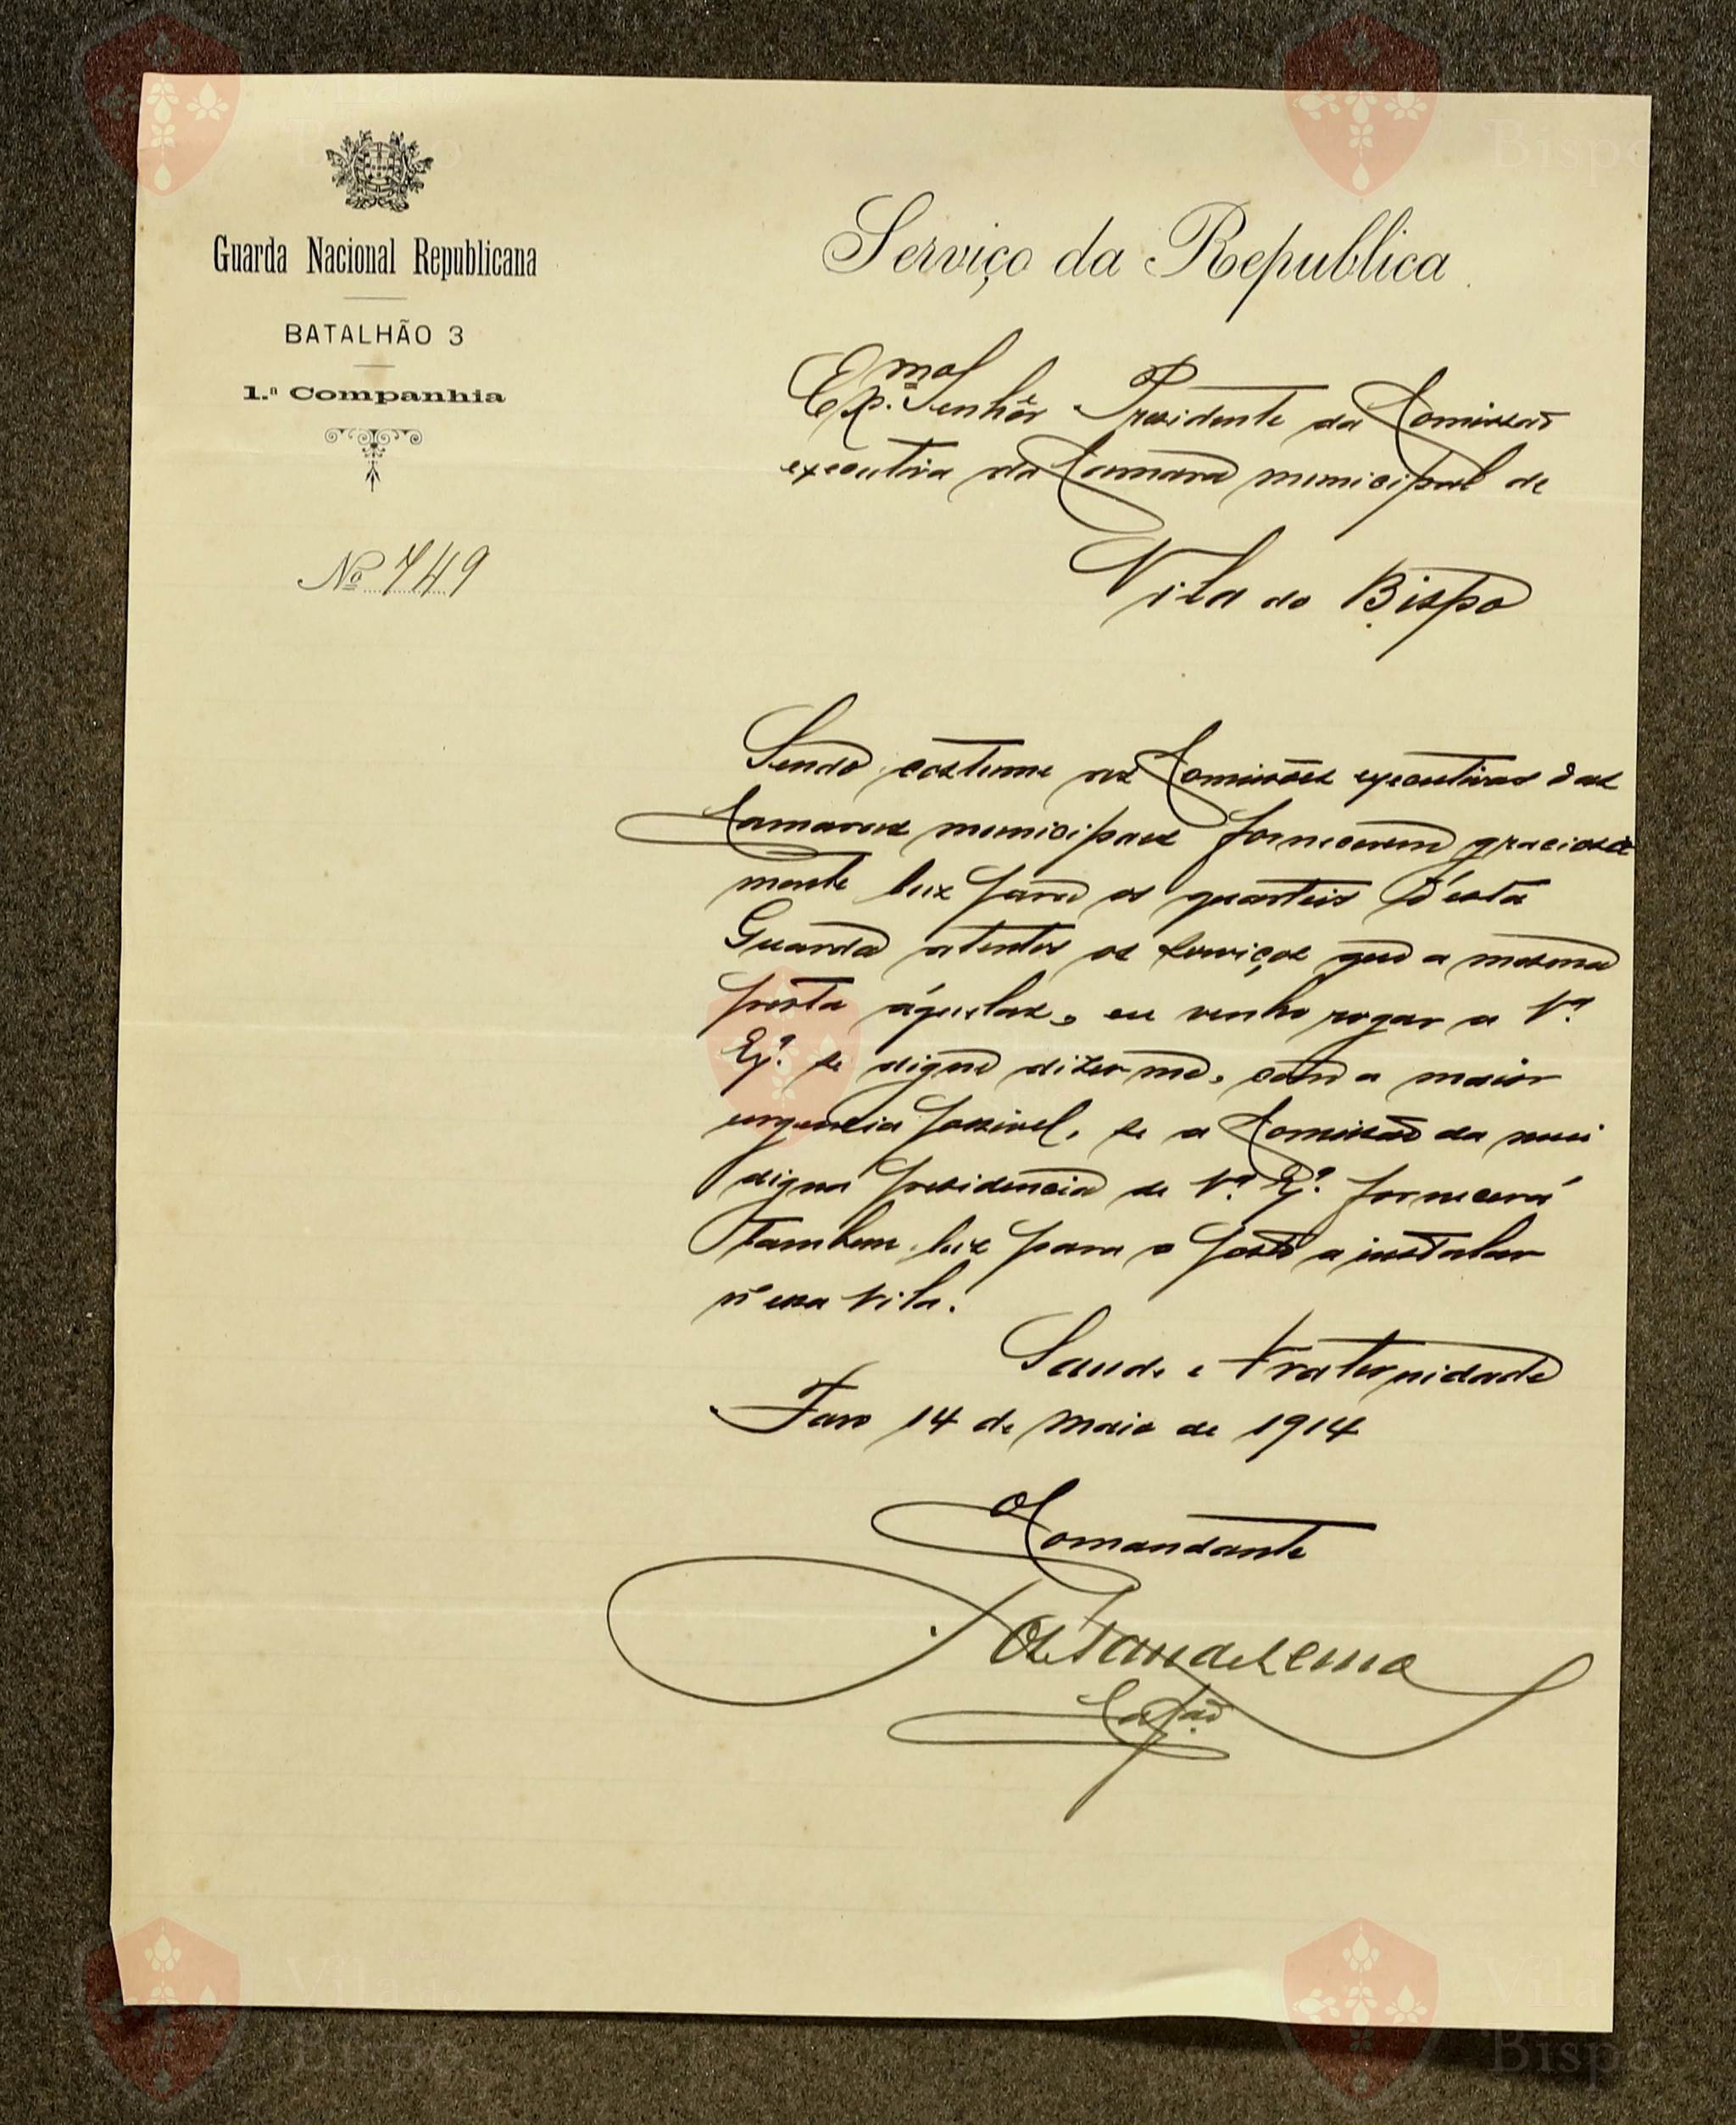 Guarda Nacional Republicana
BATALHÃO 3
1.ª Companhia
Nº 749
Serviço da Republica
Exmo. Senhôr Presidente da Comissão
executiva da Camara municipal de
Vila do Bispo
Sendo costume as Comissões executivas das
Camaras municipaes fornecerem graciosa
mente luz para os quarteis d'esta
Guarda atentos os serviços que a mesma
presta áquelas, eu venho rogar a Vª
Exª. se digne dizer-me, com a maior
urgencia possivel, se a Comissão da mui
digna presidencia de Vª Exª. fornecerá
tambem luz para o posto a instalar
n'essa Vila.
Saude e Fraternidade
Faro 14 de Maio de 1914
O Comandante
Capitão
Vila do
Bispo